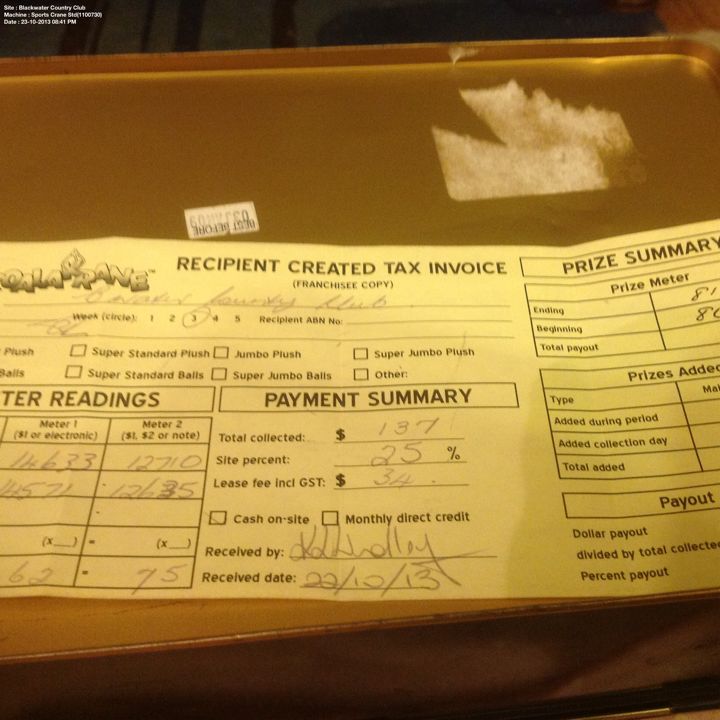 Site : Blackwater Country Club
Machine : Sports Crane Std(1100730)
Date : 23-10-2013 08:41 PM
BEST BEFORE
RECIPIENT CREATED TAX INVOICE
(FRANCHISEE COPY)
water County Club
Week (circle): 1 2 3 4 5 Recipient ABN No:
Plush Super Standard Plush Jumbo Plush Super Jumbo Plush
Balls Super Standard Balls Super Jumbo Balls Other:
TER READINGS
Meter 1 Meter 2
($1 or electronic) ($1, $2 or note)
14633 12710
14571 12635
(x__) = (x__)
62 = 75
PAYMENT SUMMARY
Total collected: $ 137
Site percent: 25 %
Lease fee incl GST: $ 34
Cash on-site Monthly direct credit
Received by:
Received date: 22/10/13
PRIZE SUMMARY
Prize Meter
Ending 81
Beginning 80
Total payout
Prizes Added
Type
Added during period
Added collection day
Total added
Payout
Dollar payout
divided by total collected
Percent payout